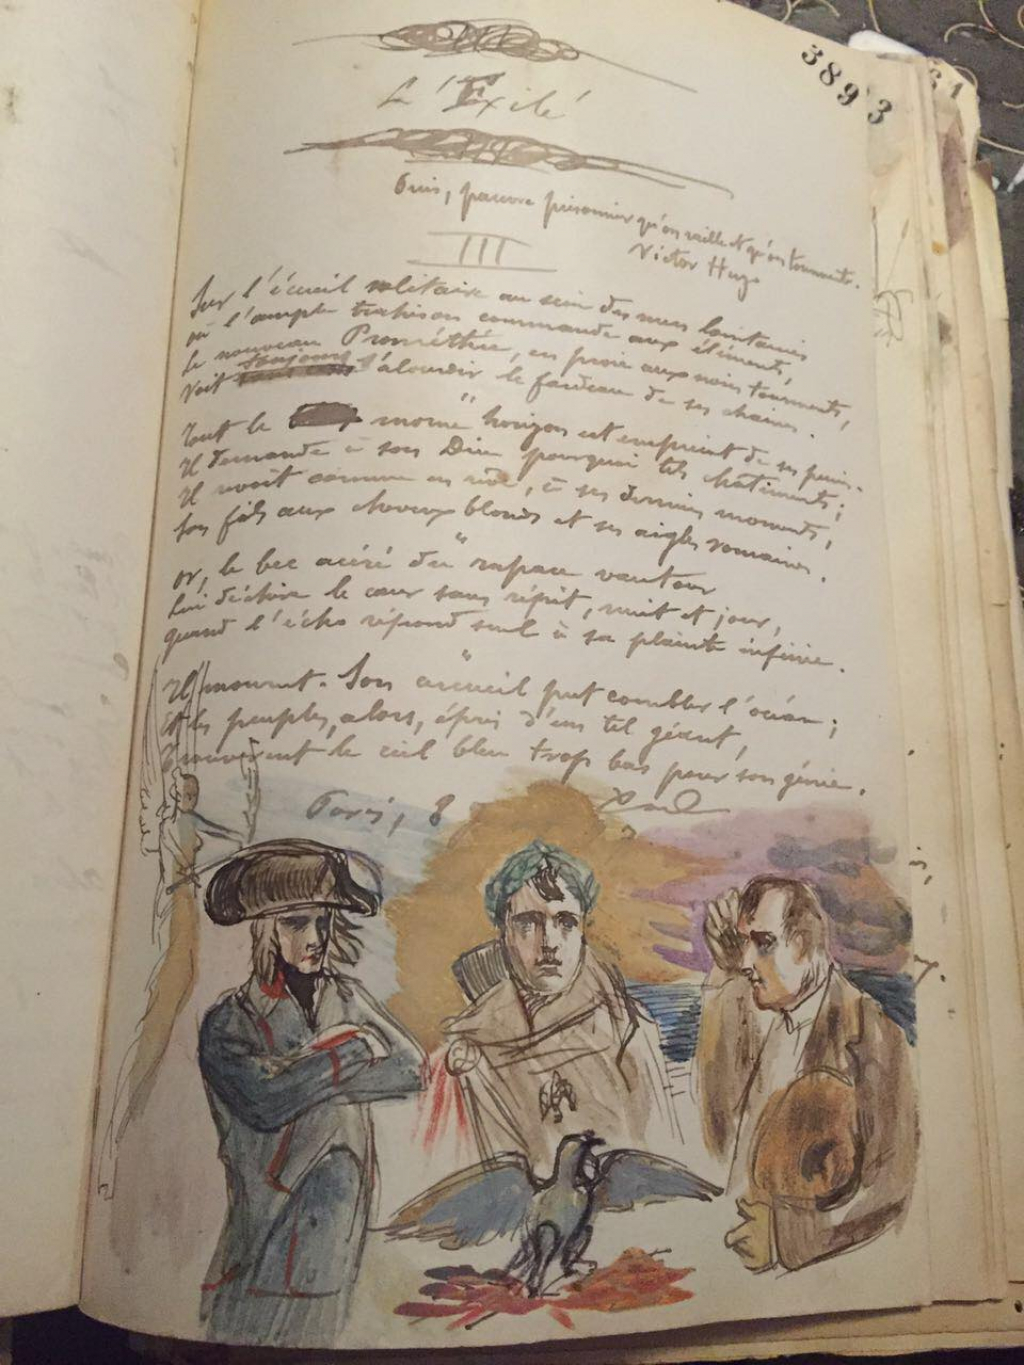 3893
L'Exilé
Puis, pauvre prisonnier qu'on raille et qu'on tourmente.
Victor Hugo
III
Sur l'écueil solitaire au sein des mers lointaines
où l'ample trahison commande aux éléments,
le nouveau Prométhée, en proie aux noirs tourments,
Voit toujours s'alourdir le fardeau de ses chaines.
Tout le morne horizon est empreint de ses peines.
Il demande à son Dieu pourquoi tels châtiments;
Il revoit comme en rêve, à ses derniers moments,
Son fils aux cheveux blonds et ses aigles romaines.
Or, le bec acéré du rapace vautour
Lui déchire le cœur sans répit, nuit et jour,
quand l'écho répond seul à sa plainte infinie.
Il mourut. Son cercueil put combler l'océan;
Et les peuples, alors, épris d'un tel géant,
Trouvèrent le ciel bleu trop bas pour son génie.
Paris, 8